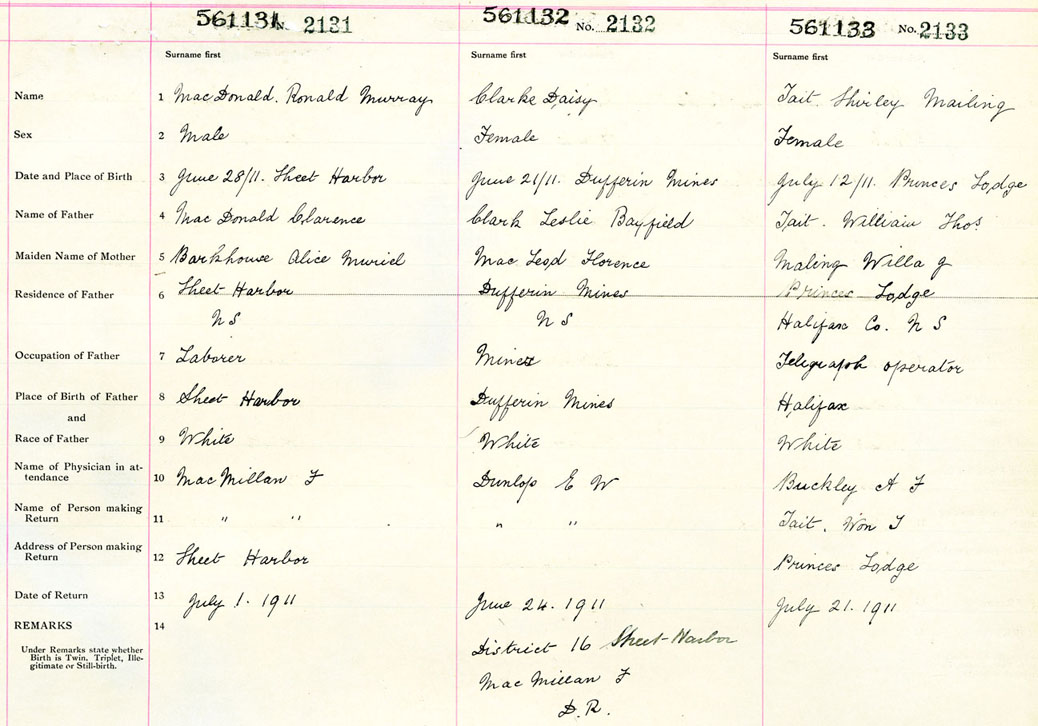 561131 No. 2131 561132 No. 2132 561133 No. 2133
Surname first Surname first Surname first
Name 1 MacDonald. Ronald Murray Clarke Daisy Tait. Shirley Mailing
Sex 2 Male Female Female
Date and Place of Birth 3 June 28/11. Sheet Harbor June 21/11. Dufferin Mines July 12/11. Princes Lodge
Name of Father 4 Mac Donald Clarence Clark Leslie Bayfield Tait. William Thos.
Maiden Name of Mother 5 Barkhouse Alice Muriel Mac Leod Florence Maling Willa J
Residence of Father 6 Sheet Harbor Dufferin Mines Princes Lodge
N S N S Halifax Co. N S
Occupation of Father 7 Laborer Miner Telegraph operator
Place of Birth of Father 8 Sheet Harbor Dufferin Mines Halifax
and
Race of Father 9 White White White
Name of Physician in at-
tendance 10 MacMillan F Dunlop E W Buckley A F
Name of Person making
Return 11 " " " " Tait. Wm T
Address of Person making
Return 12 Sheet Harbor Princes Lodge
Date of Return 13 July 1. 1911 June 24. 1911 July 21. 1911
REMARKS 14
Under Remarks state whether
Birth is Twin. Triplet, Ille-
gitimate or Still-birth.
District 16 Sheet-Harbor
Mac Millan F
D. R.